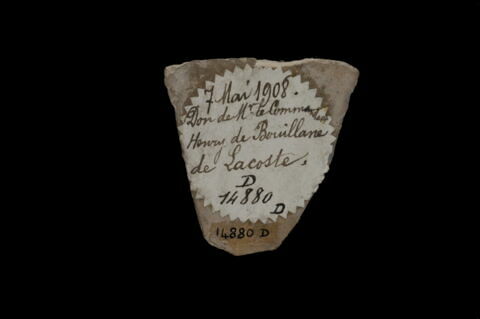 7 Mai 1908.
Don de Mr. le Commandant
Henry de Bouillane
de Lacoste.
D
14880
D
14880 D